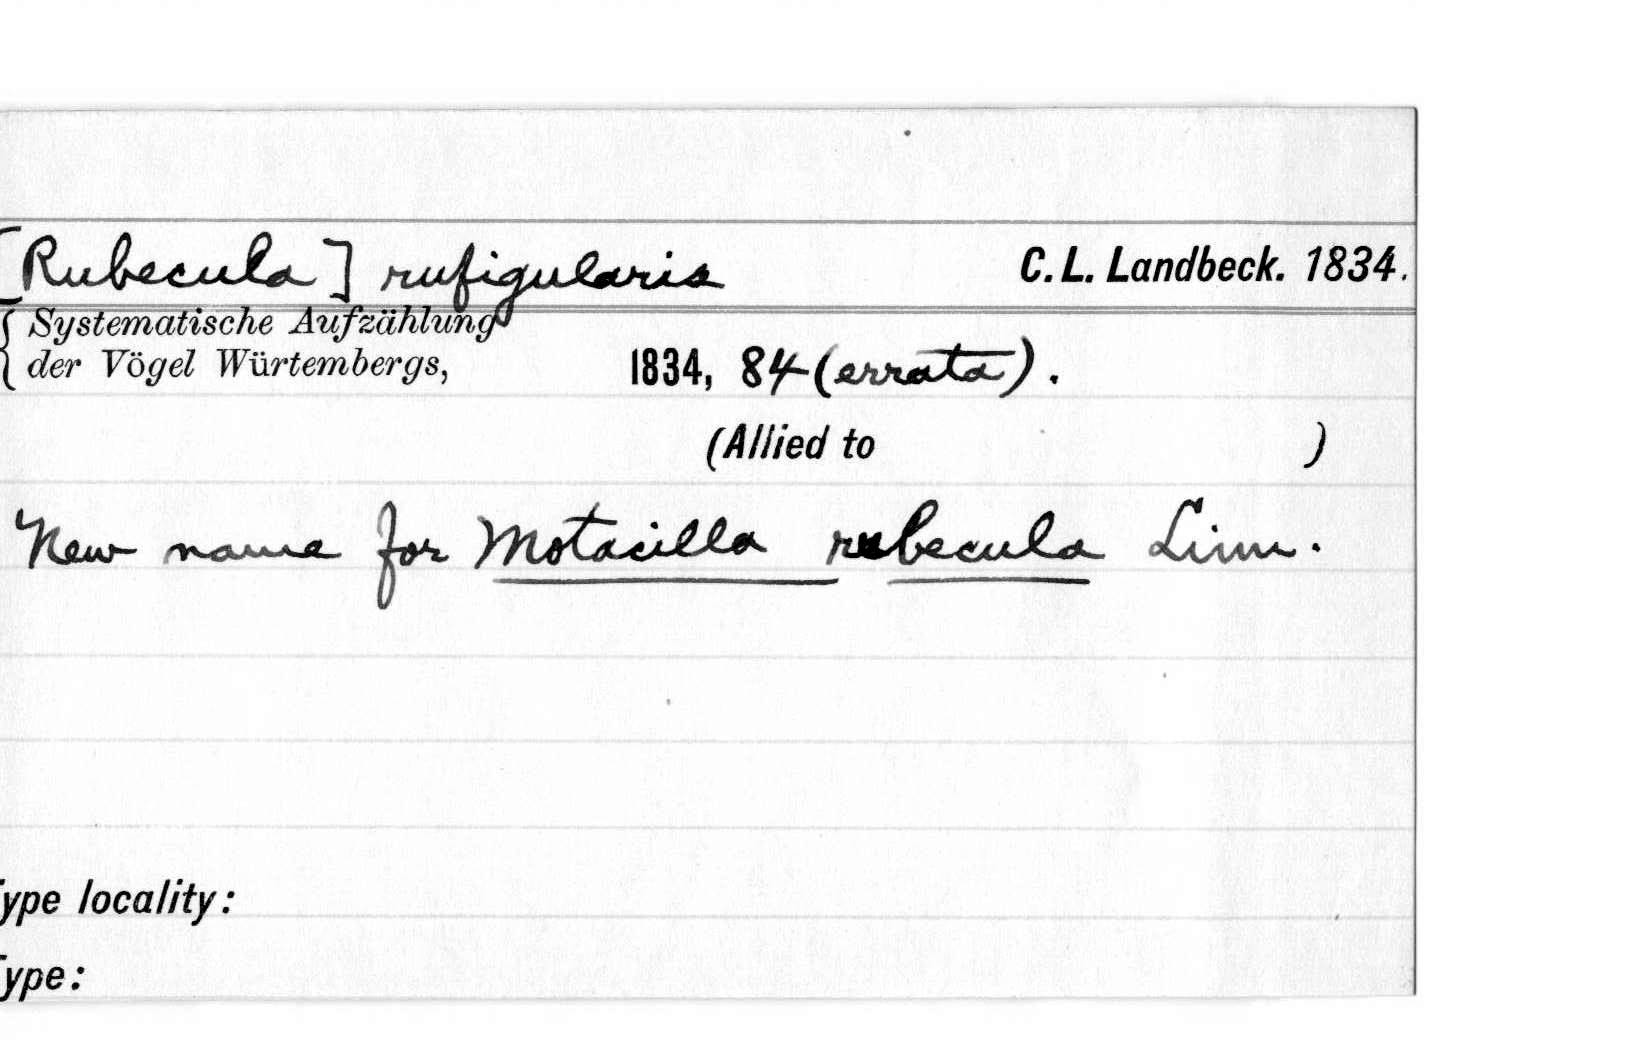 [Rubecula] rufigularis C. L. Landbeck. 1834.
{ Systematische Aufzählung
{ der Vögel Würtembergs, 1834, 84 (errata).
(Allied to )
New name for Motacilla rubecula Linn.
Type locality:
Type: